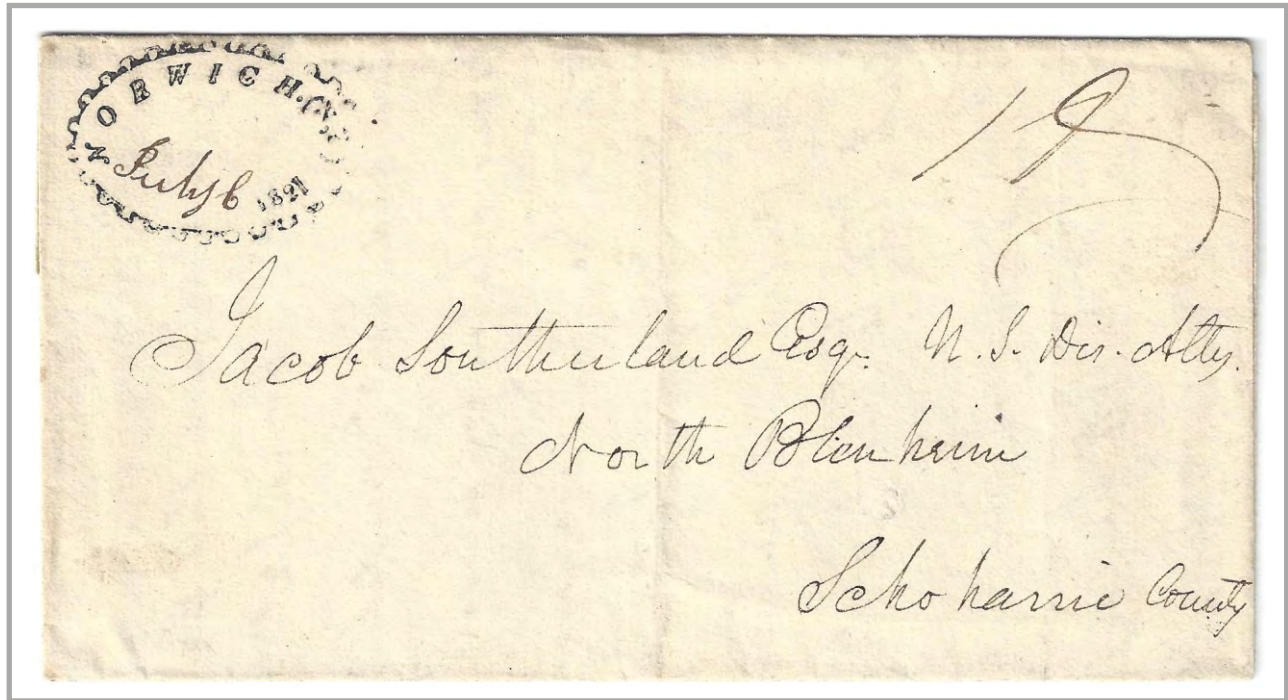 NORWICH. (N.Y.)
July 6 1821
Jacob Southerland Esqr. U. S. Dis. Atty.
North Blenheim
Schoharrie County